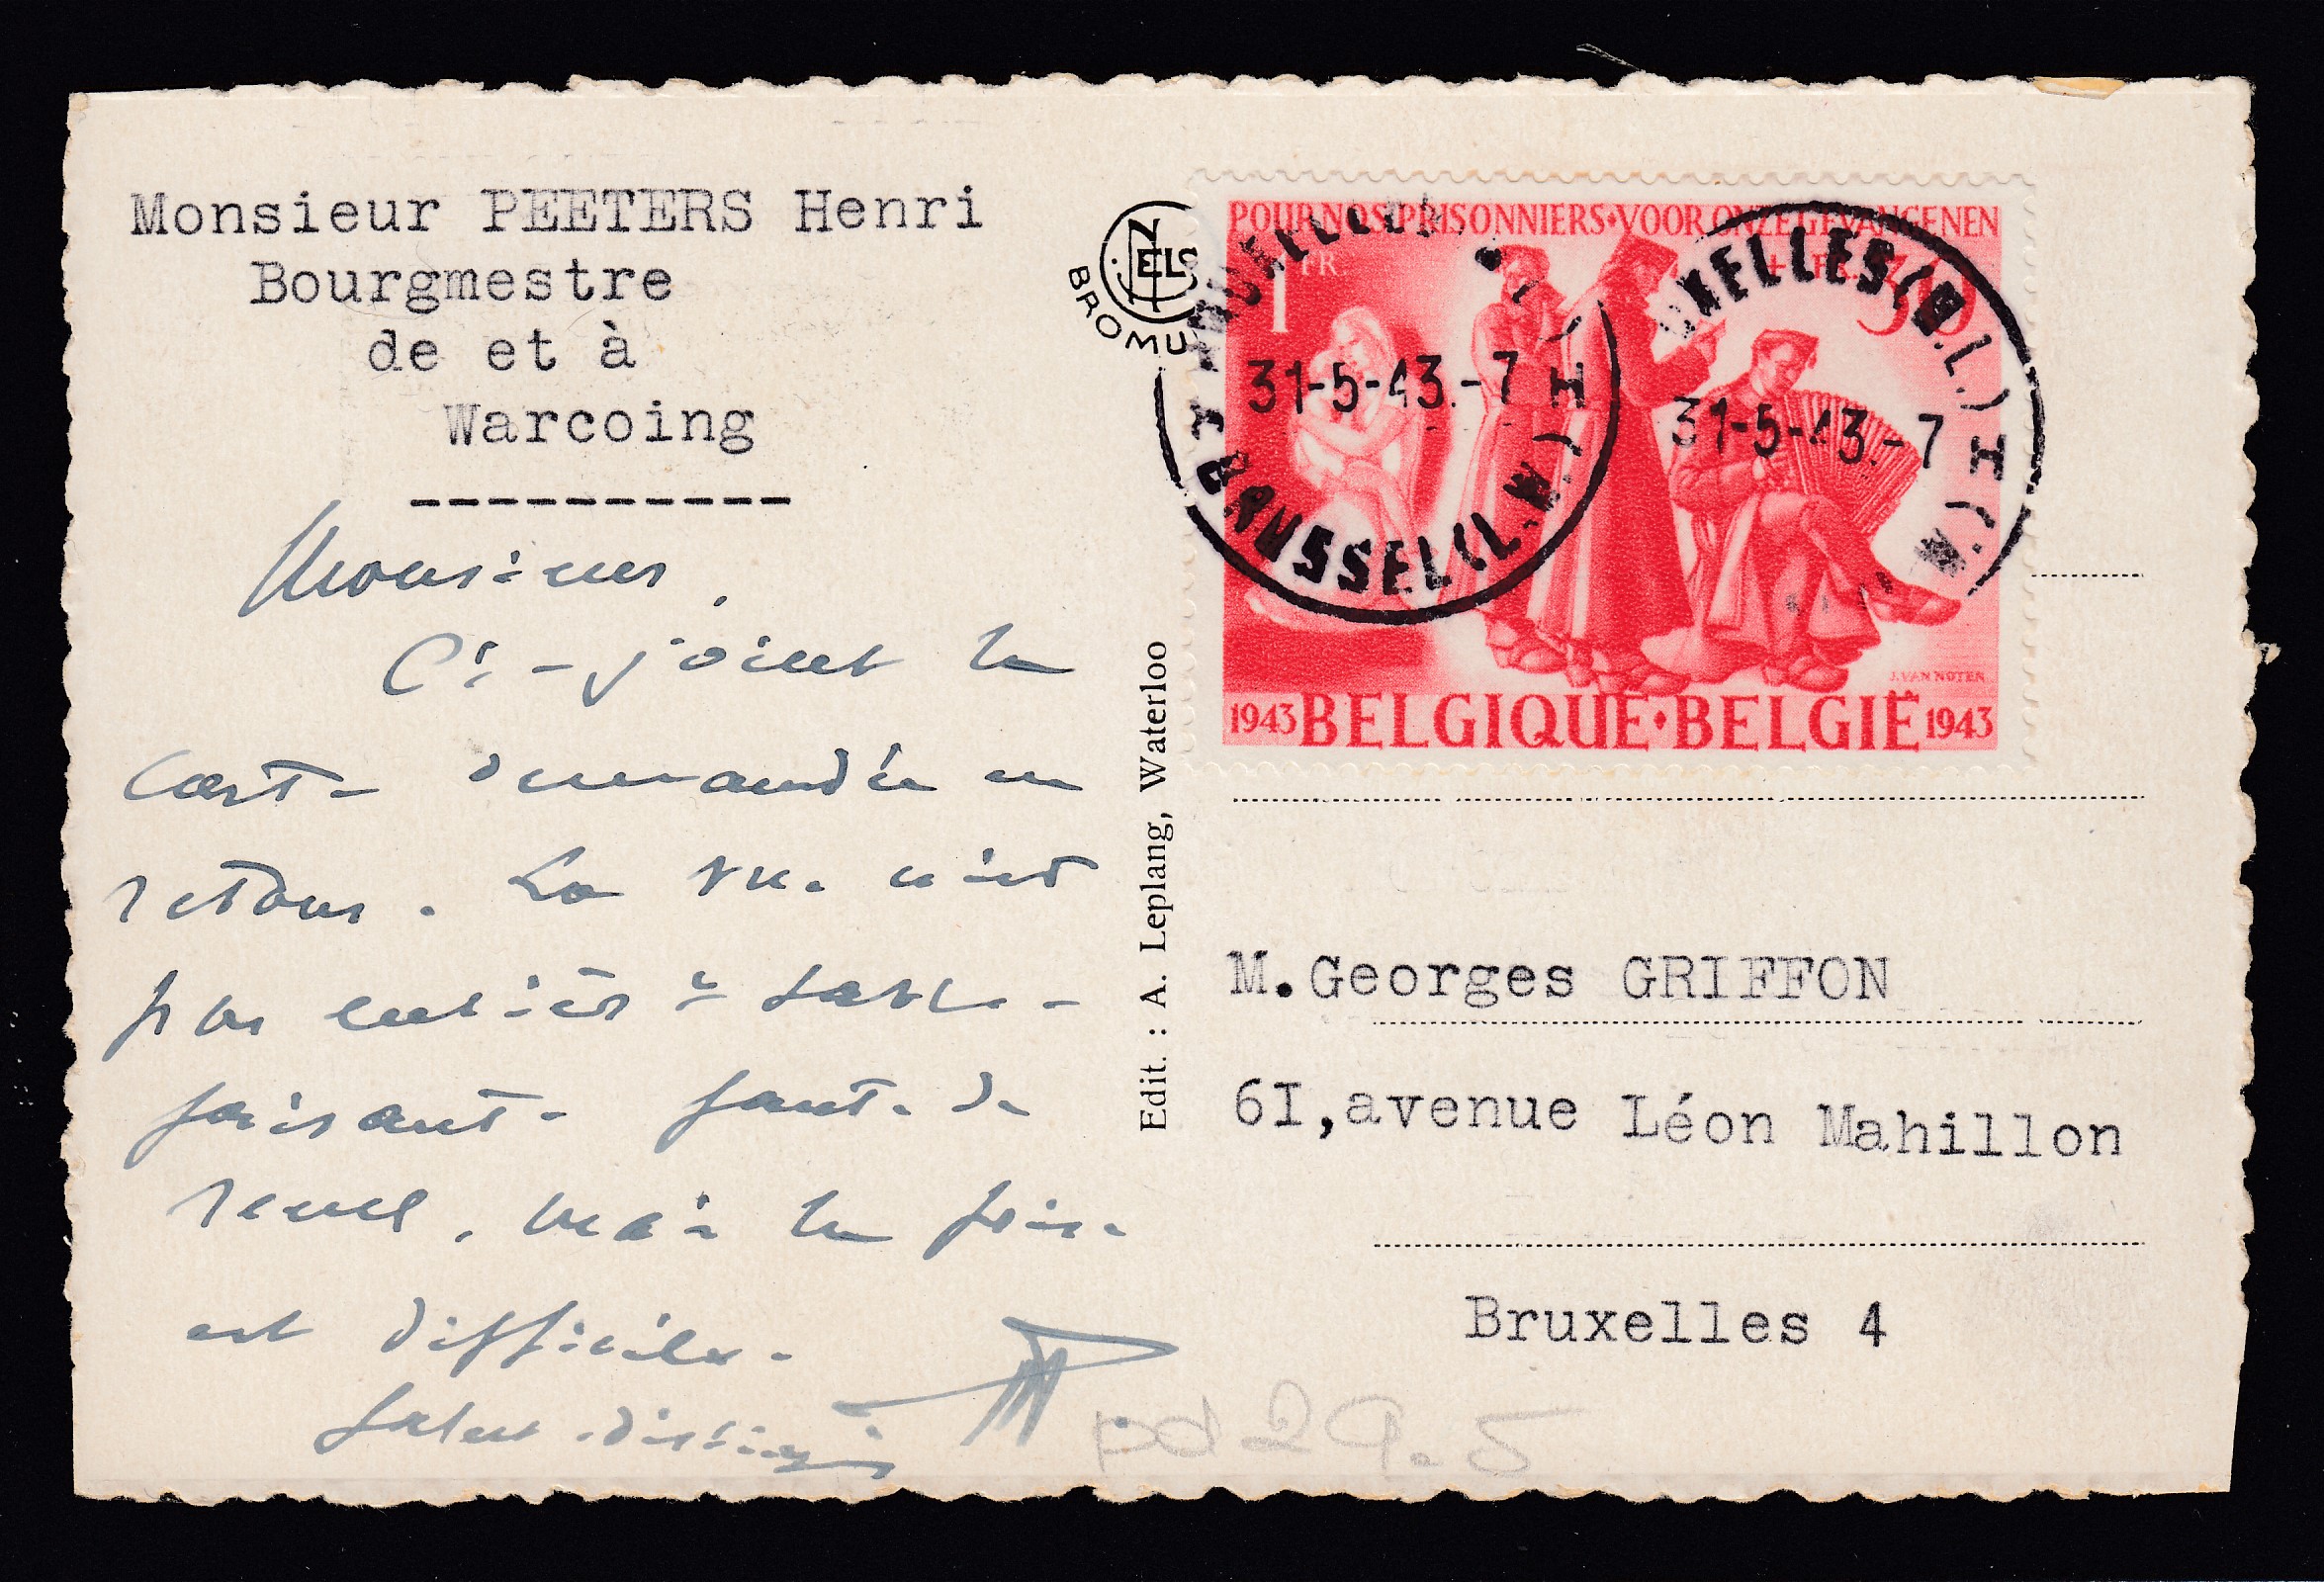 Monsieur PEETERS Henri
Bourgmestre
de et à
Warcoing
----------
Monsieur,
Ci-joint la
carte demandée en
retour. La vue n'est
pas entièr
faisante faute de
recul, mais la prise
est difficile.
Salut distingué
NELS
BROMU
Edit. : A. Leplang, Waterloo
POUR NOS PRISONNIERS•VOOR ONZE GEVANGENEN
1 FR
+ 30
BRUXELLES
31-5-43.-7 H
BRUSSEL(L.W.)
UXELLES(M.L.)
31-5-43.-7 H
J.VAN NOTEN
1943 BELGIQUE•BELGIË 1943
M.Georges GRIFFON
6I,avenue Léon Mahillon
Bruxelles 4
pd 29.5